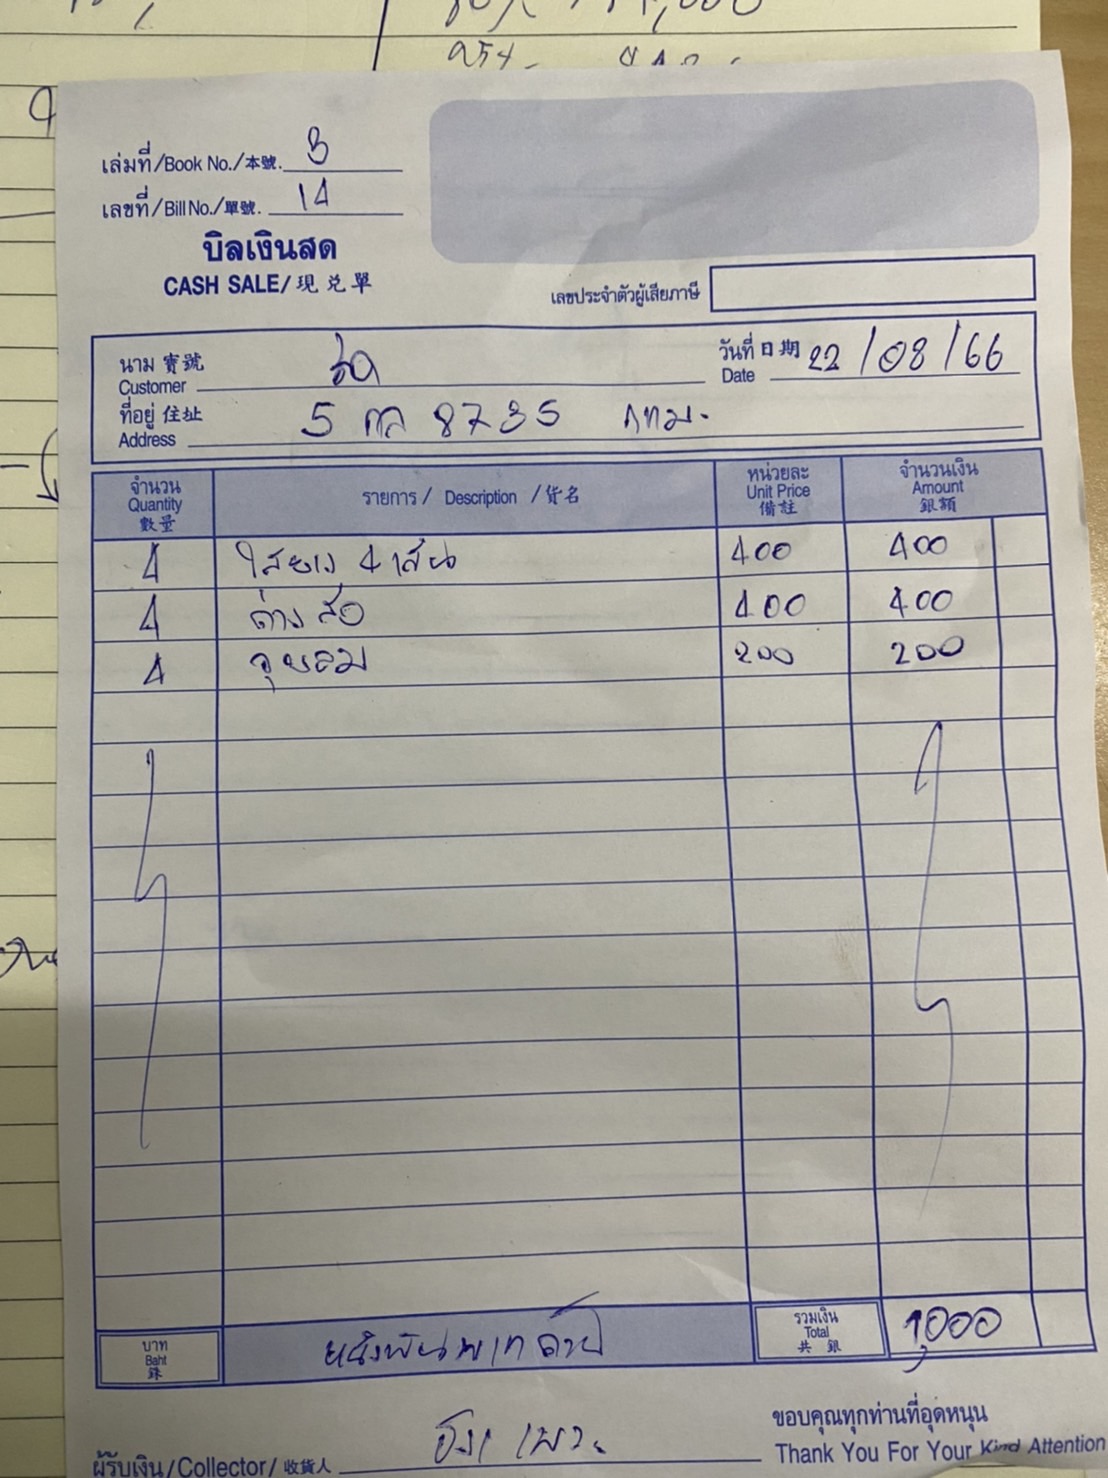 เล่มที่/Book No./本號. 3
เลขที่/Bill No./單號. 14
บิลเงินสด
CASH SALE/現兌單
เลขประจำตัวผู้เสียภาษี
นาม 寶號 Customer รถ
วันที่ 日期 Date 22/08/66
ที่อยู่ 住址 Address 5 กก 8735 กทม.
จำนวน Quantity 數量 รายการ / Description / 貨名 หน่วยละ Unit Price 備註 จำนวนเงิน Amount 銀額
4 ใส่ยาง 4 เส้น 400 400
4 ถ่วงล้อ 400 400
4 จุบลม 200 200
บาท Baht 銖 หนึ่งพันบาทถ้วน รวมเงิน Total 共銀 1,000
ขอบคุณทุกท่านที่อุดหนุน
ผู้รับเงิน/Collector/收貨人 Thank You For Your Kind Attention